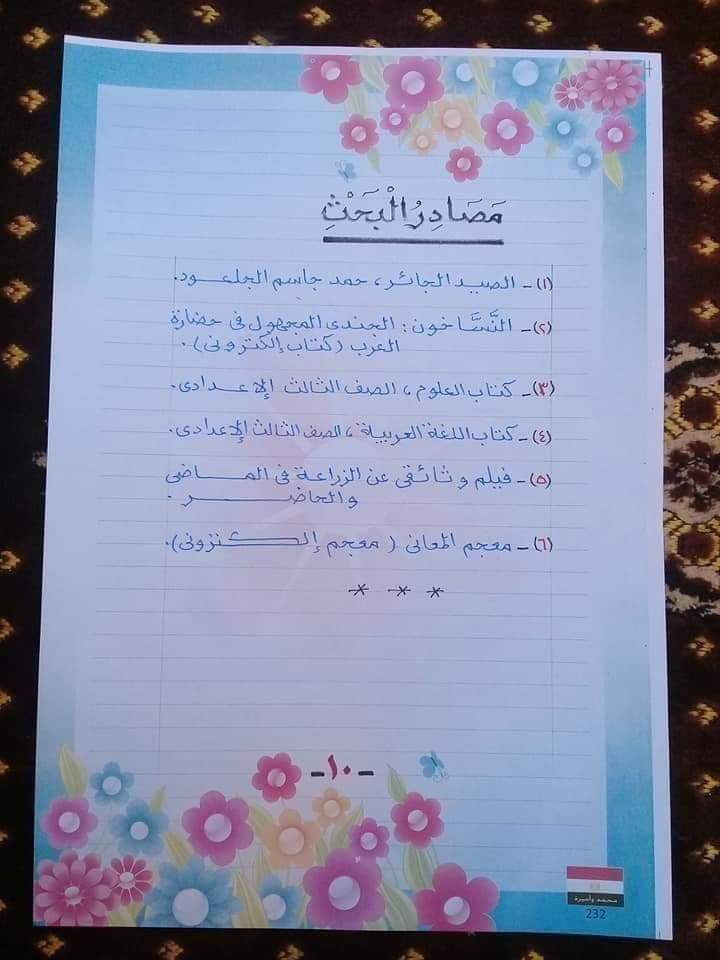 مَصَادِرُ الْبَحْثِ
(١) - الصيد الجائر، حمد جاسم الجلعود.
(٢) - النَّسَّاخون: الجندى المجهول فى حضارة
العرب (كتاب إلكترونى).
(٣) - كتاب العلوم، الصف الثالث الإعدادى.
(٤) - كتاب اللغة العربية، الصف الثالث الإعدادى.
(٥) - فيلم وثائقى عن الزراعة فى الماضى
والحاضر.
(٦) - معجم المعانى (معجم إلكترونى).
* * *
- ١٠ -
محمد وأميرة
232